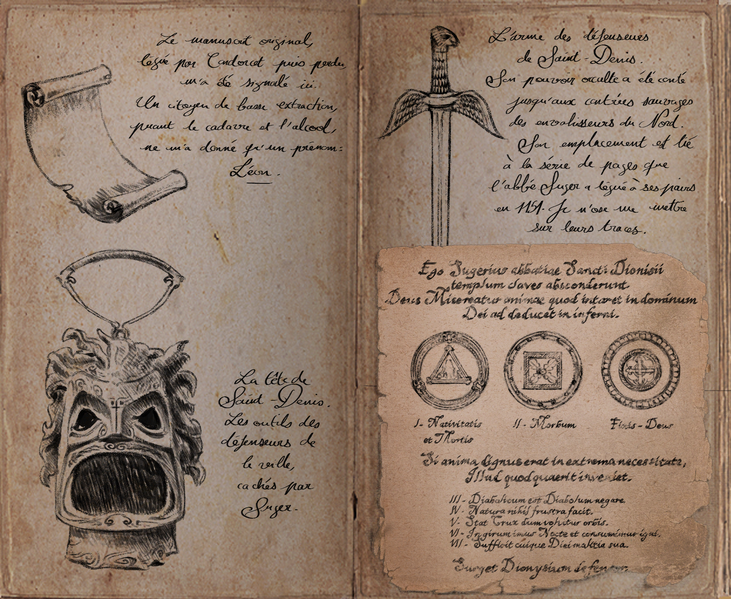 Le manuscrit original,
légué par Condorcet puis perdu
m'a été signalé ici.
Un citoyen de basse extraction,
puant le cadavre et l'alcool,
ne m'a donné qu'un prénom:
Léon.
La tête de
Saint-Denis.
Les outils des
défenseurs de
la ville,
cachés par
Suger.
L'arme des défenseurs
de Saint-Denis.
Son pouvoir occulte a été conté
jusqu'aux contrées sauvages
des envahisseurs du Nord.
Son emplacement est lié
à la série de pages que
l'abbé Suger a légué à ses pairs
en 1151. Je n'ose me mettre
sur leurs traces.
Ego Sugerius abbatiae Sancti Dionisii
templum claves absconderunt
Deus Misereatur animae quod intaret in dominum
Dei ad deducet in inferni.
I- Nativitatis
et Mortis
II- Morbum
Flois-Deus
Si anima dignus erat in extrema necessitate,
Illud quod quaerit inveniet.
III- Diabolicum est Diabolum negare.
IV- Natura nihil frustra facit.
V- Stat Crux dum volvitur orbis.
VI- In girum imus Nocte et consumimur igni.
VII- Sufficit cuique Diei malitia sua.
Surget Dionysium